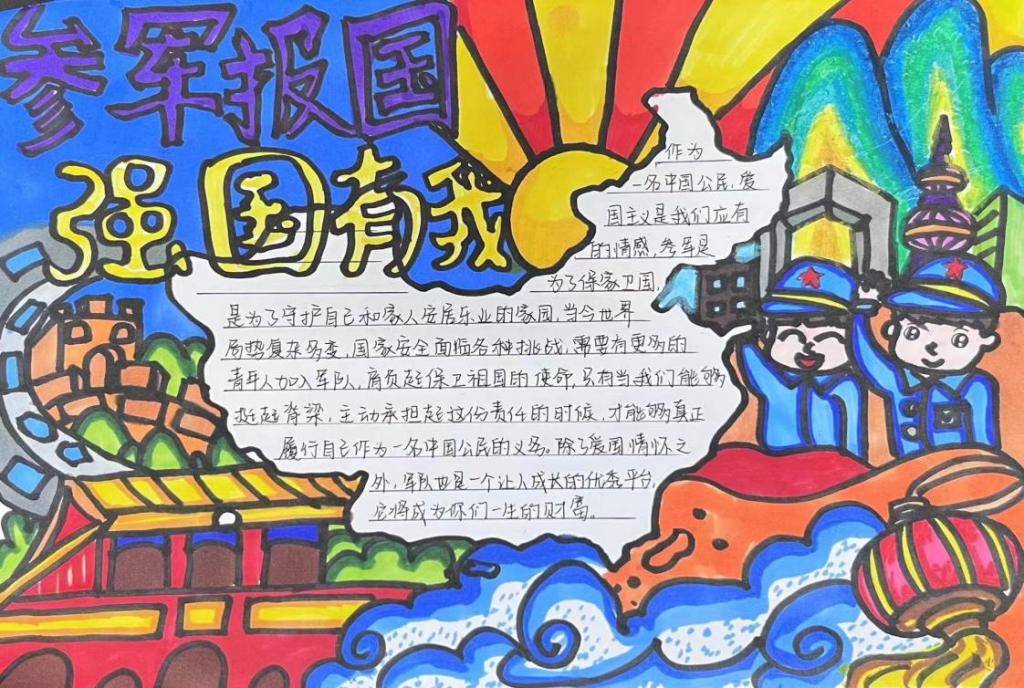 参军报国
强国有我
作为
一名中国公民，爱
国主义是我们应有
的情感，参军是
为了保家卫国，
是为了守护自己和家人安居乐业的家园，当今世界
局势复杂多变，国家安全面临各种挑战，需要有更多的
青年人加入军队，肩负起保卫祖国的使命，只有当我们能够
挺起脊梁，主动承担起这份责任的时候，才能够真正
履行自己作为一名中国公民的义务。除了爱国情怀之
外，军队也是一个让人成长的优秀平台，
它将成为你们一生的财富。